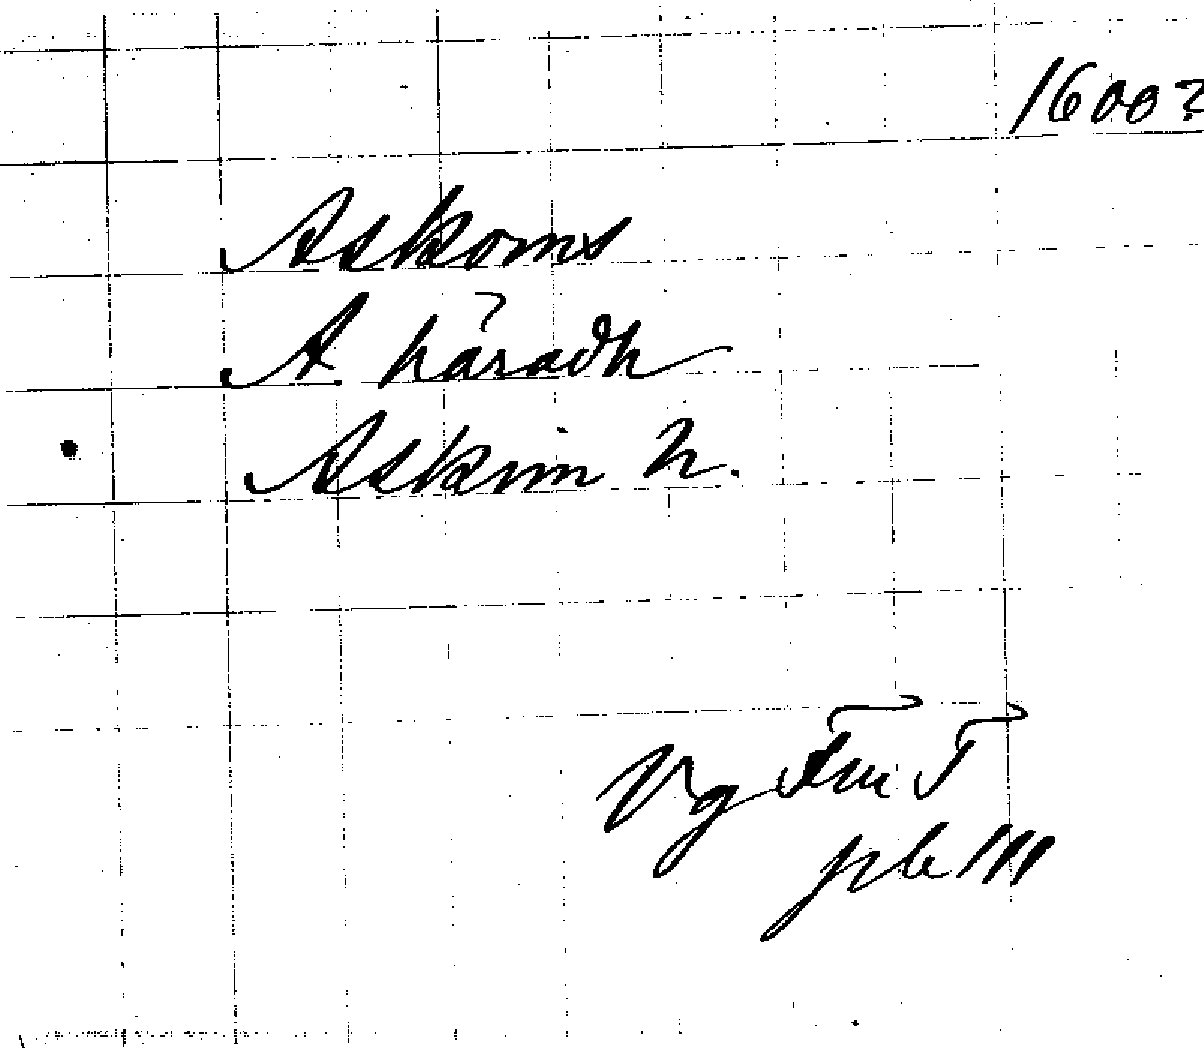 1600?
Askoms
A häradh
Askim h.
Vg
p 6 111